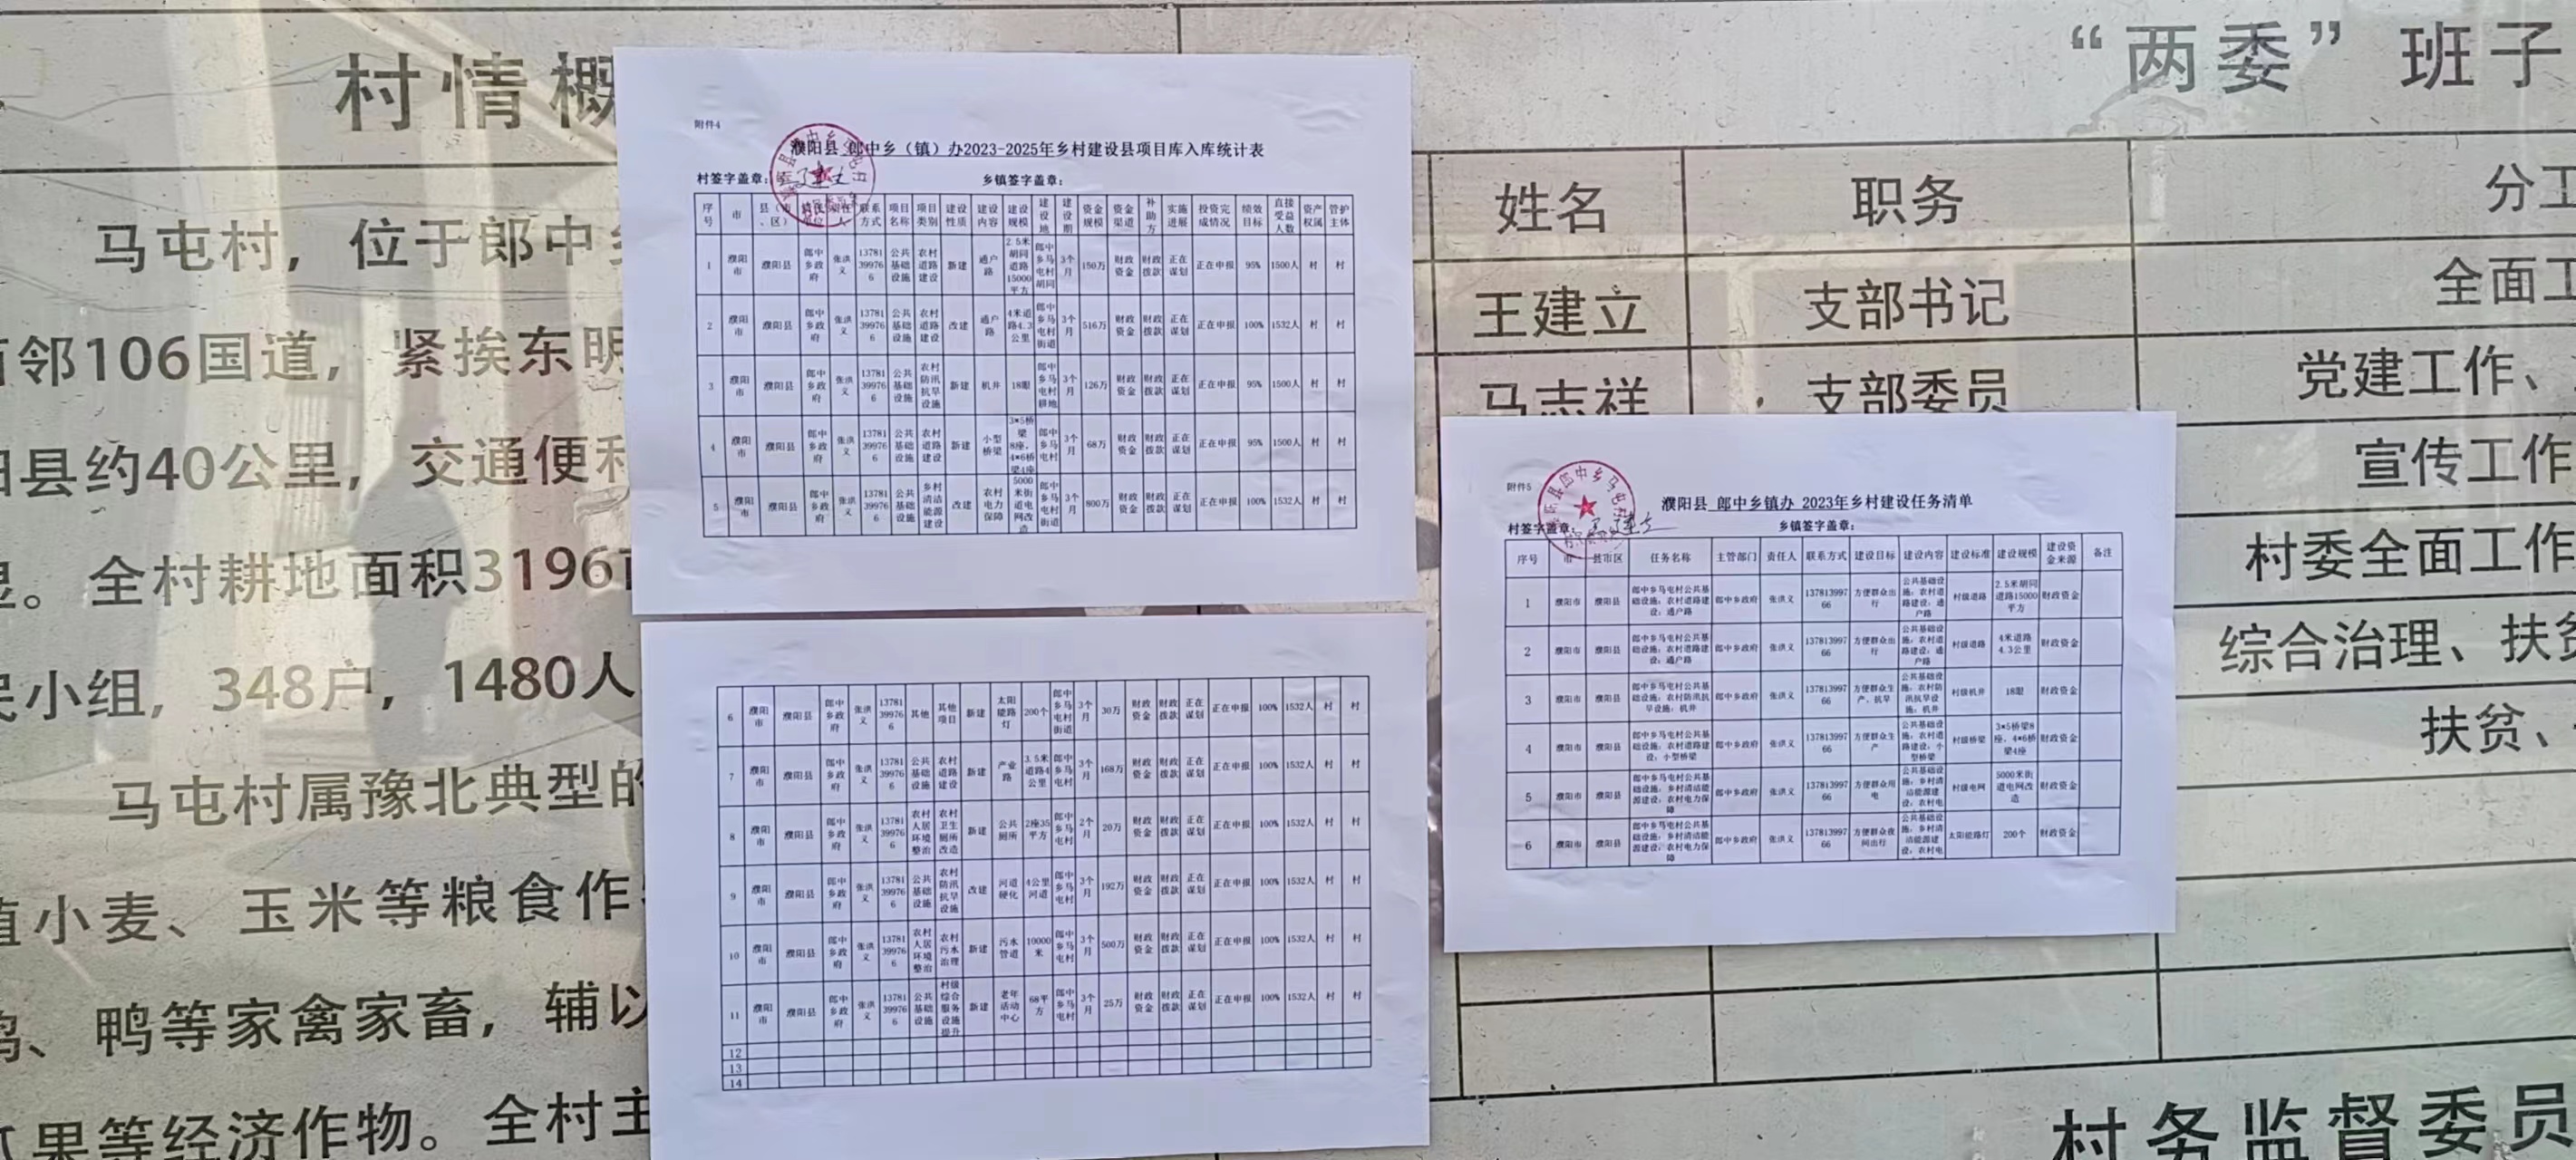 村情概
马屯村，位于郎中乡
邻106国道，紧挨东明
阳县约40公里，交通便利
。全村耕地面积3196亩
民小组，348户，1480人
马屯村属豫北典型的
植小麦、玉米等粮食作
鸡、鸭等家禽家畜，辅以
果等经济作物。全村主
附件4
濮阳县 郎中乡（镇）办2023-2025年乡村建设县项目库入库统计表
村签字盖章： 乡镇签字盖章：
序号 市 县（市、区） 联系方式 项目名称 项目类别 建设性质 建设内容 建设规模 建设地 建设期 资金规模 资金渠道 补助方 实施进展 投资完成情况 绩效目标 直接受益人数 资产权属 管护主体
1 濮阳市 濮阳县 郎中乡政府 张洪义 13781399766 公共基础设施 农村道路建设 新建 通户路 2.5米胡同道路15000平方 郎中乡马屯村胡同 3个月 150万 财政资金 财政拨款 正在谋划 正在申报 95% 1500人 村 村
2 濮阳市 濮阳县 郎中乡政府 张洪义 13781399766 公共基础设施 农村道路建设 改建 通户路 4米道路4.3公里 郎中乡马屯村街道 3个月 516万 财政资金 财政拨款 正在谋划 正在申报 100% 1532人 村 村
3 濮阳市 濮阳县 郎中乡政府 张洪义 13781399766 公共基础设施 农村防汛抗旱设施 新建 机井 18眼 郎中乡马屯村耕地 3个月 126万 财政资金 财政拨款 正在谋划 正在申报 95% 1500人 村 村
4 濮阳市 濮阳县 郎中乡政府 张洪义 13781399766 公共基础设施 农村道路建设 新建 小型桥梁 3*5桥梁8座，4*6桥梁4座 郎中乡马屯村 3个月 68万 财政资金 财政拨款 正在谋划 正在申报 95% 1500人 村 村
5 濮阳市 濮阳县 郎中乡政府 张洪义 13781399766 公共基础设施 乡村清洁能源建设 改建 农村电力保障 5000米街道电网改造 郎中乡马屯村街道 3个月 800万 财政资金 财政拨款 正在谋划 正在申报 100% 1532人 村 村
6 濮阳市 濮阳县 郎中乡政府 张洪义 13781399766 其他 其他项目 新建 太阳能路灯 200个 郎中乡马屯村街道 3个月 30万 财政资金 财政拨款 正在谋划 正在申报 100% 1532人 村 村
7 濮阳市 濮阳县 郎中乡政府 张洪义 13781399766 公共基础设施 农村道路建设 新建 产业路 3.5米道路4公里 郎中乡马屯村 3个月 168万 财政资金 财政拨款 正在谋划 正在申报 100% 1532人 村 村
8 濮阳市 濮阳县 郎中乡政府 张洪义 13781399766 农村人居环境整治 农村卫生厕所改造 新建 公共厕所 2座35平方 郎中乡马屯村 2个月 20万 财政资金 财政拨款 正在谋划 正在申报 100% 1532人 村 村
9 濮阳市 濮阳县 郎中乡政府 张洪义 13781399766 公共基础设施 农村防汛抗旱设施 改建 河道硬化 4公里河道 郎中乡马屯村 3个月 192万 财政资金 财政拨款 正在谋划 正在申报 100% 1532人 村 村
10 濮阳市 濮阳县 郎中乡政府 张洪义 13781399766 农村人居环境整治 农村污水治理 新建 污水管道 10000米 郎中乡马屯村 3个月 500万 财政资金 财政拨款 正在谋划 正在申报 100% 1532人 村 村
11 濮阳市 濮阳县 郎中乡政府 张洪义 13781399766 公共基础设施 村级综合服务设施提升 新建 老年活动中心 68平方 郎中乡马屯村 3个月 25万 财政资金 财政拨款 正在谋划 正在申报 100% 1532人 村 村
12
13
14
“两委”班子
姓名 职务 分工
王建立 支部书记 全面工
马志祥 支部委员 党建工作、
宣传工作
村委全面工作
综合治理、扶贫
扶贫、
附件5
濮阳县 郎中乡镇办 2023年乡村建设任务清单
村签字盖章： 乡镇签字盖章：
序号 市 县市区 任务名称 主管部门 责任人 联系方式 建设目标 建设内容 建设标准 建设规模 建设资金来源 备注
1 濮阳市 濮阳县 郎中乡马屯村公共基础设施，农村道路建设，通户路 郎中乡政府 张洪义 13781399766 方便群众出行 公共基础设施，农村道路建设，通户路 村级道路 2.5米胡同道路15000平方 财政资金
2 濮阳市 濮阳县 郎中乡马屯村公共基础设施，农村道路建设，通户路 郎中乡政府 张洪义 13781399766 方便群众出行 公共基础设施，农村道路建设，通户路 村级道路 4米道路4.3公里 财政资金
3 濮阳市 濮阳县 郎中乡马屯村公共基础设施，农村防汛抗旱设施，机井 郎中乡政府 张洪义 13781399766 方便群众生产、抗旱 公共基础设施，农村防汛抗旱设施，机井 村级机井 18眼 财政资金
4 濮阳市 濮阳县 郎中乡马屯村公共基础设施，农村道路建设，小型桥梁 郎中乡政府 张洪义 13781399766 方便群众生产 公共基础设施，农村道路建设，小型桥梁 村级桥梁 3*5桥梁8座，4*6桥梁4座 财政资金
5 濮阳市 濮阳县 郎中乡马屯村公共基础设施，乡村清洁能源建设，农村电力保障 郎中乡政府 张洪义 13781399766 方便群众用电 公共基础设施，乡村清洁能源建设，农村电 村级电网 5000米街道电网改造 财政资金
6 濮阳市 濮阳县 郎中乡马屯村公共基础设施，乡村清洁能源建设，农村电力保障 郎中乡政府 张洪义 13781399766 方便群众夜间出行 公共基础设施，乡村清洁能源建设，农村电 太阳能路灯 200个 财政资金
村务监督委员